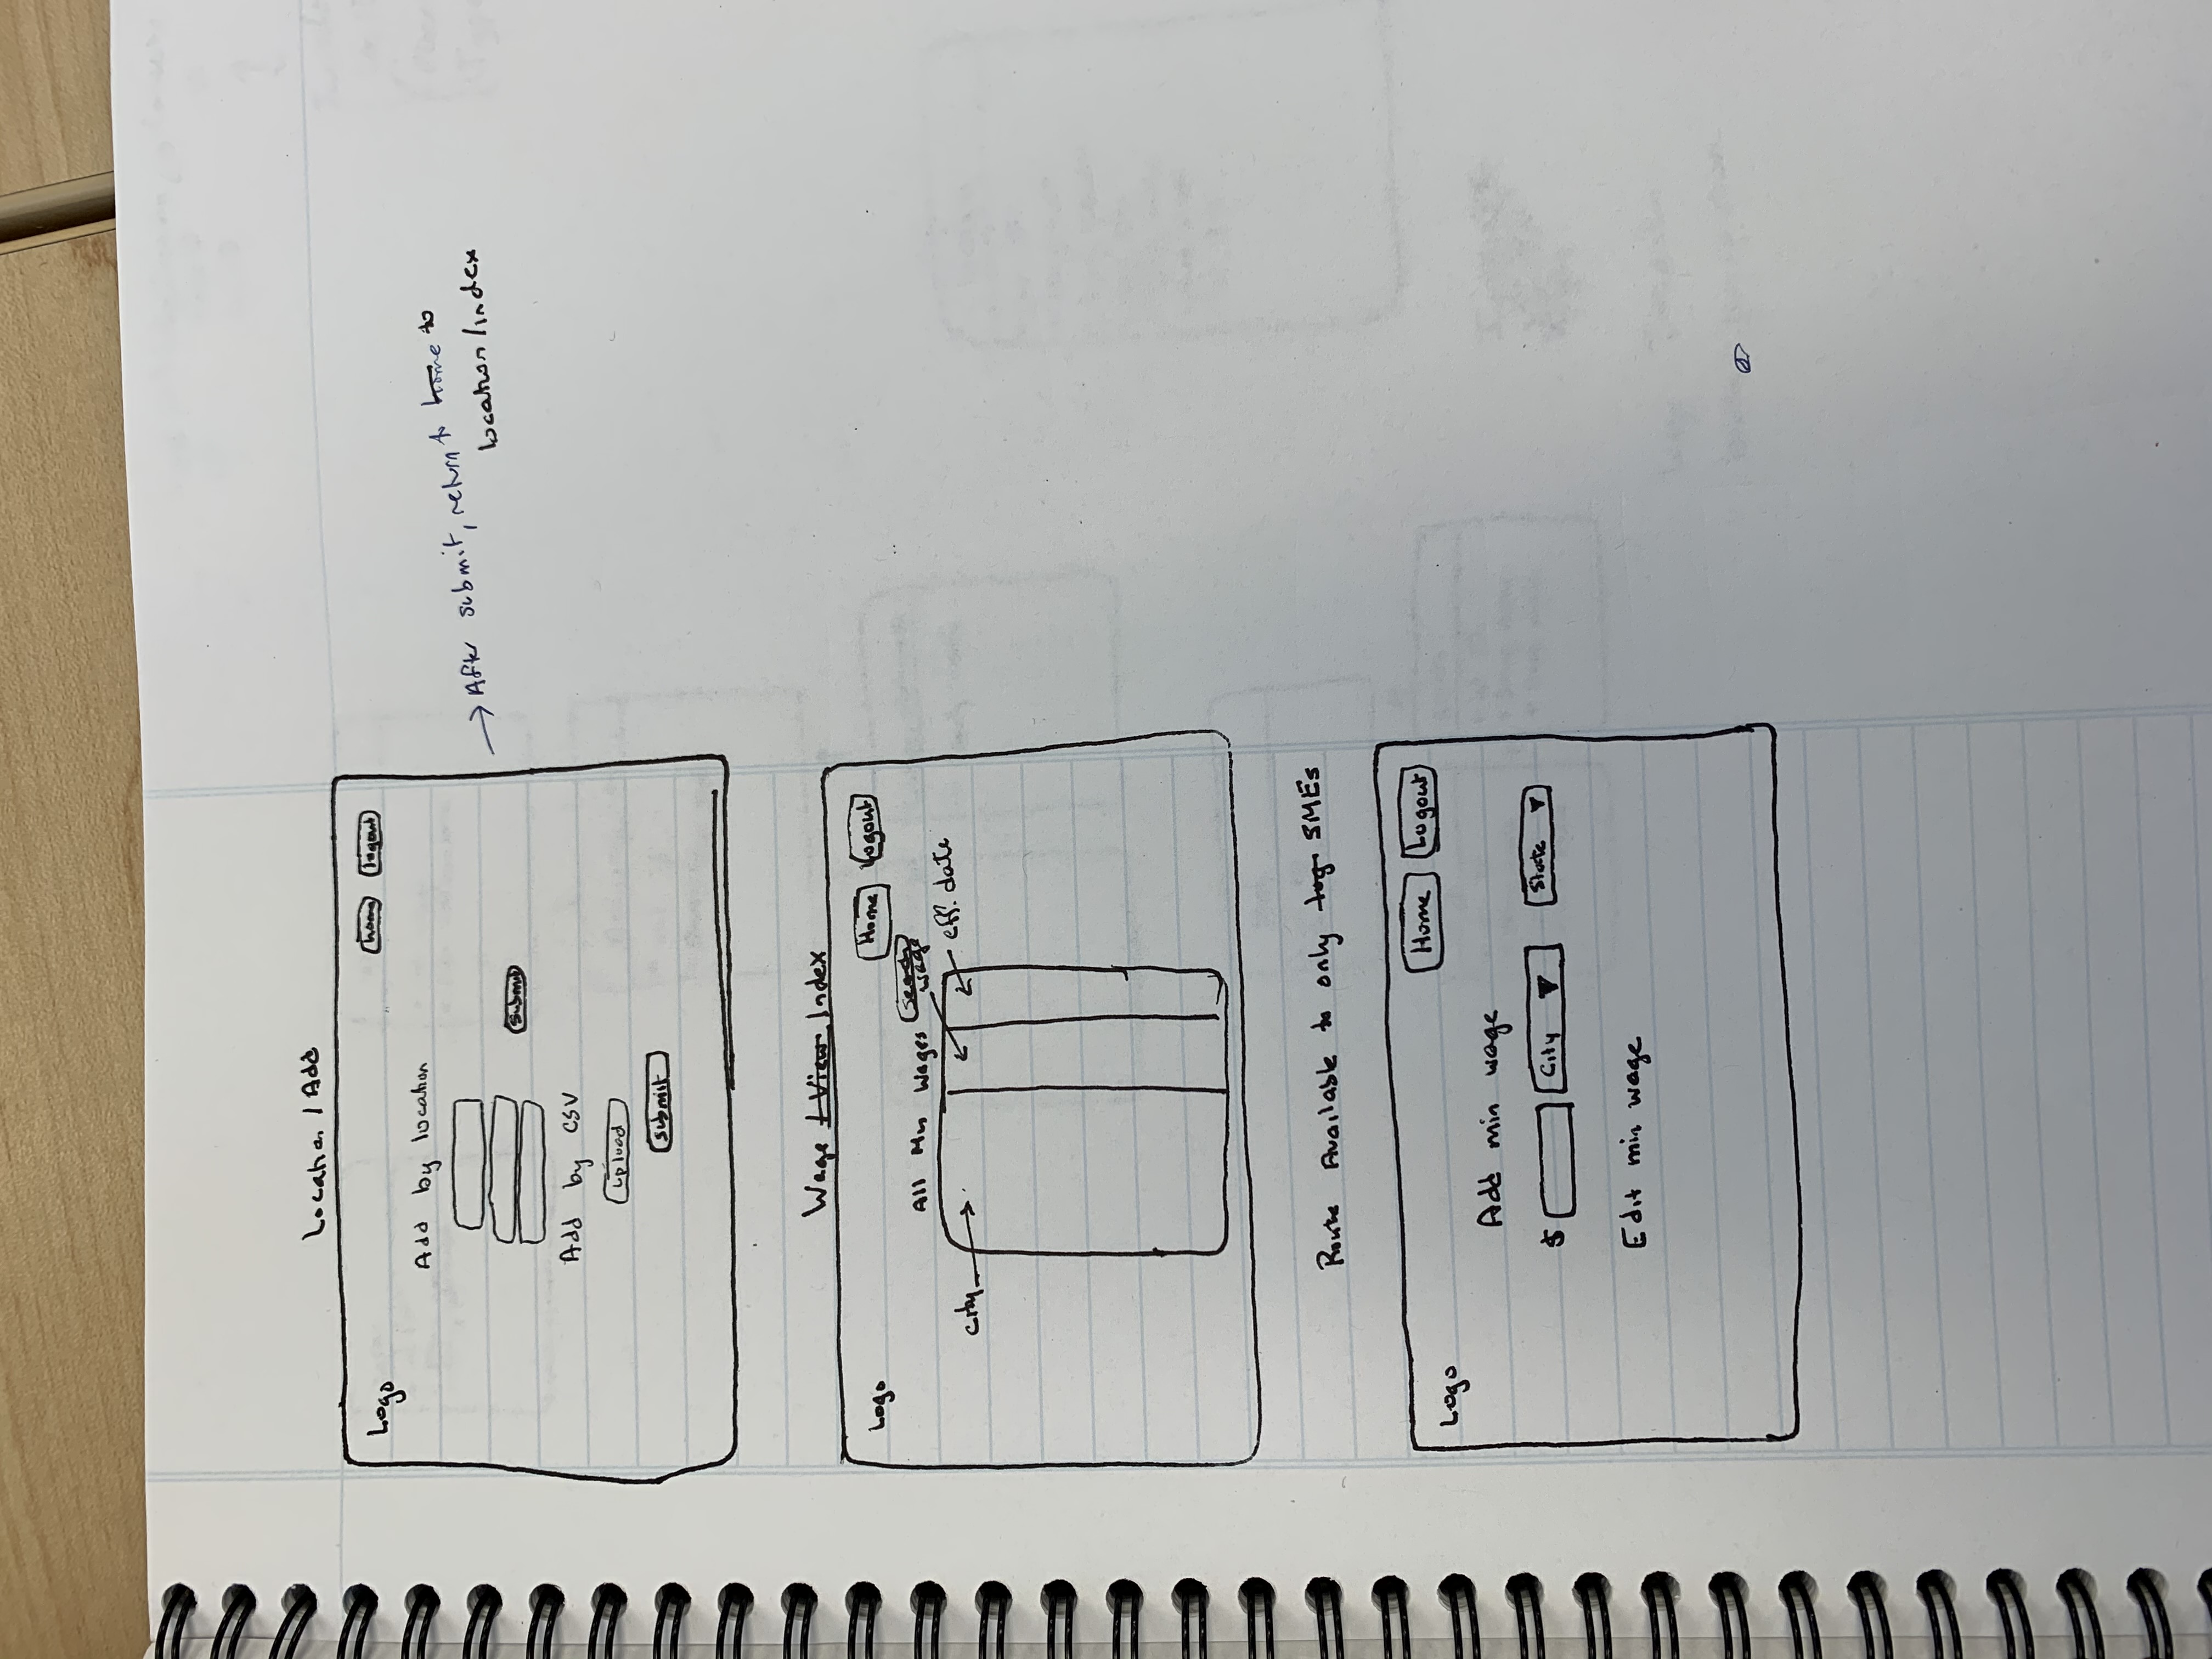 Location / Add
Logo
home
logout
Add by location
submit
Add by CSV
upload
submit
→ After submit, return to home to
location/index
Wage / View Index
Logo
Home
Logout
All Min Wages
search
wage
city
eff. date
Route Available to only log SMEs
Logo
Home
Logout
Add min wage
$
City ▼
State ▼
Edit min wage